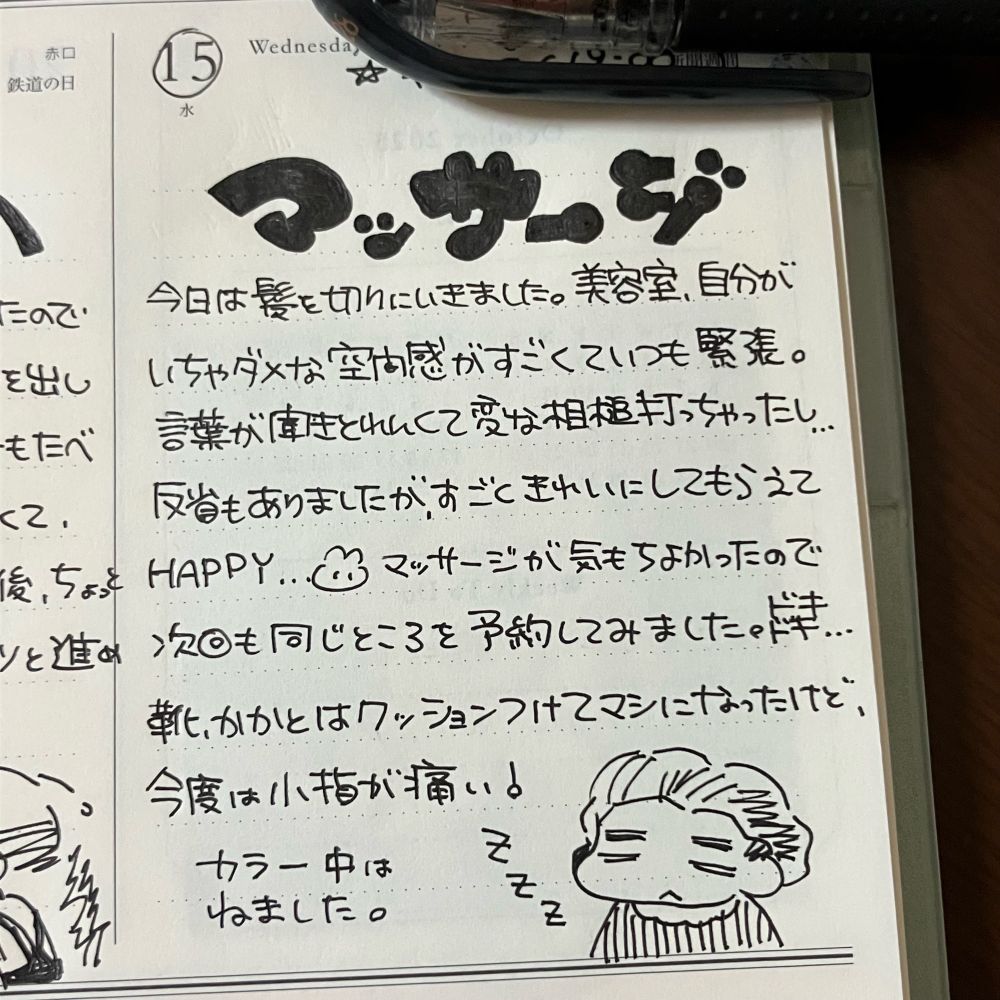 赤口
鉄道の日
たので
を出し
もたべ
くて、
後、ちょっと
と進め
15 Wednesday
水
☆
マッサージ
今日は髪を切りにいきました。美容室、自分が
いちゃダメな空間感がすごくていつも緊張。
言葉が聞きとれんくて変な相槌打っちゃったし…
反省もありましたが、すごくきれいにしてもらえて
HAPPY... マッサージが気もちよかったので
次回も同じところを予約してみました。ドキドキ…
靴、かかとはクッションつけてマシになったけど、
今度は小指が痛い!
カラー中は
ねました。
z
z
z